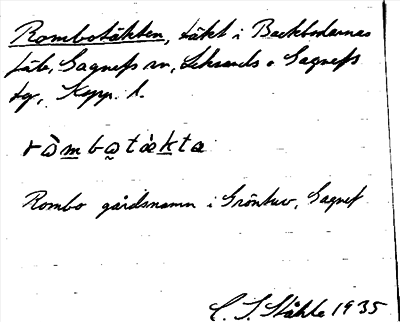 Rombotäkten, täkt i Backbodarnas
fäb., Gagnefs sn, Leksands o Gagnefs
tg, Kopp. l.
ròmbotàkta
Rombo gårdsnamn i Gröntuv, Gagnef
C. I. Ståhle 1935